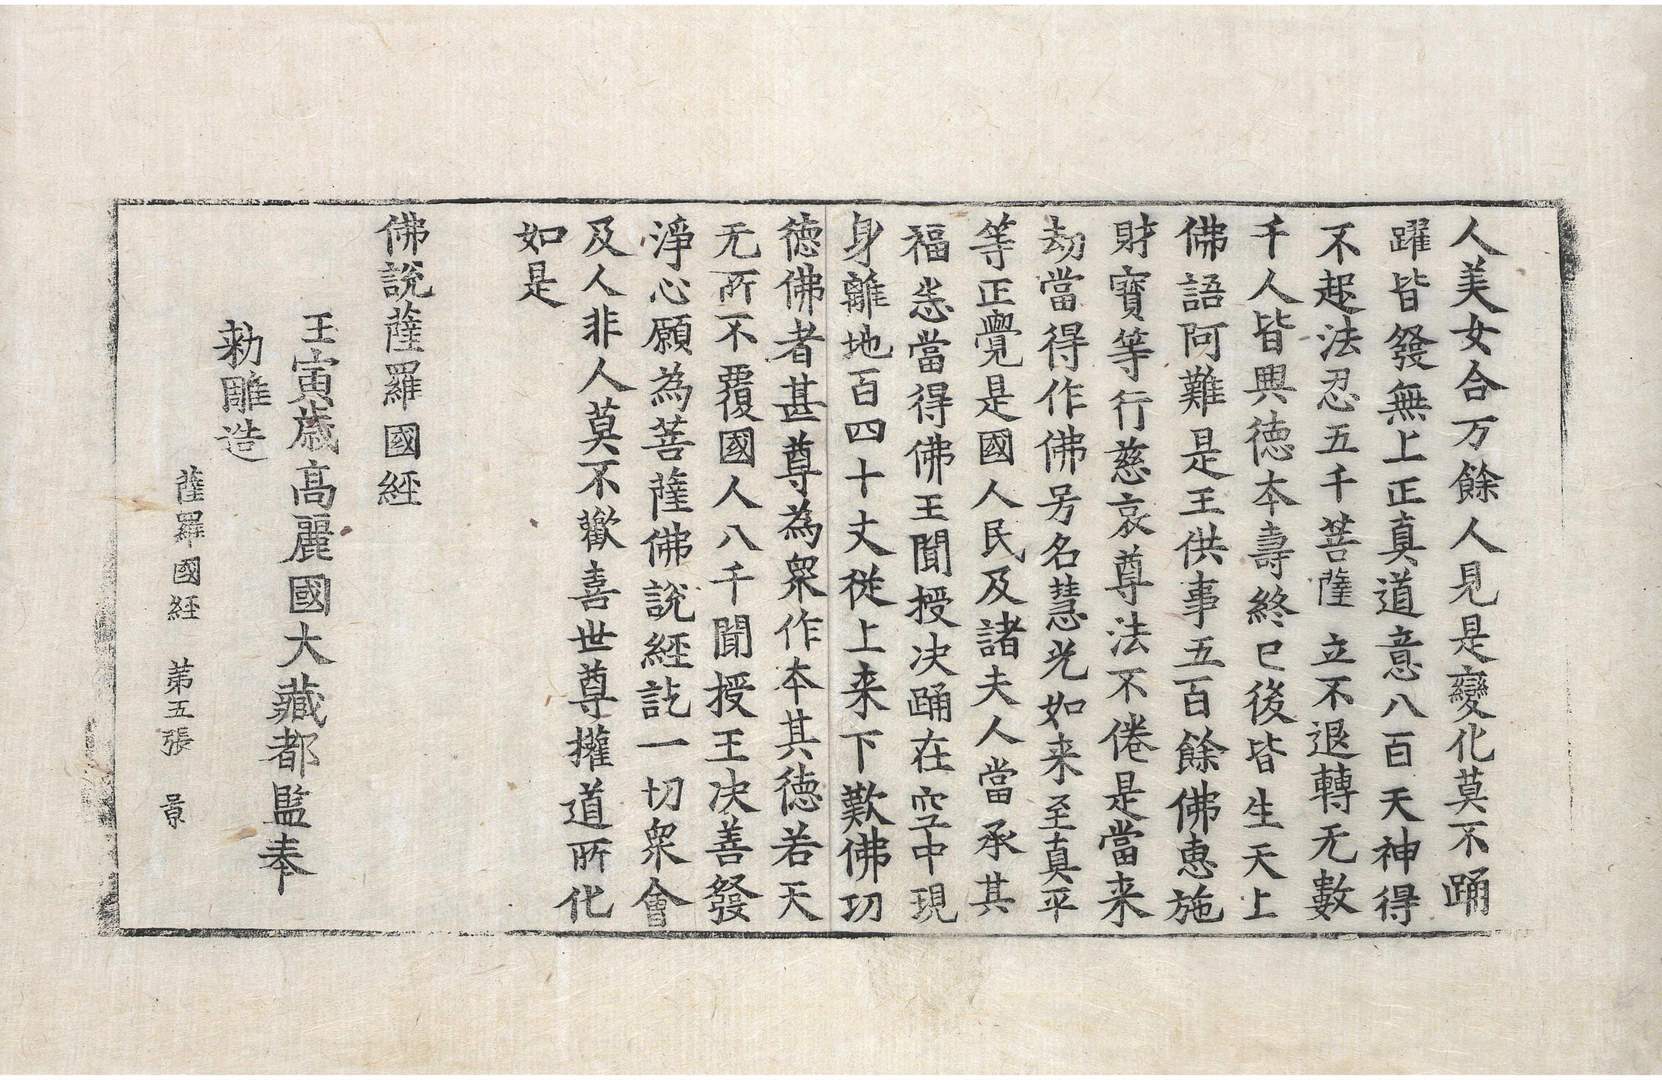 人美女合万餘人見是變化莫不踊
躍皆發無上正真道意八百天神得
不起法忍五千菩薩立不退轉无數
千人皆興德本壽終已後皆生天上
佛語阿難是王供事五百餘佛惠施
財寶等行慈哀尊法不倦是當来
劫當得作佛号名慧光如来至真平
等正覺是國人民及諸夫人當承其
福恙當得佛王聞授决踊在空中現
身離地百四十丈從上来下歎佛功
德佛者甚尊為衆作本其德若天
无所不覆國人八千聞授王决善發
淨心願為菩薩佛說經訖一切衆會
及人非人莫不歡喜世尊權道所化
如是
佛說薩羅國經
壬寅歲高麗國大藏都監奉
勑雕造
薩羅國經 第五張 景